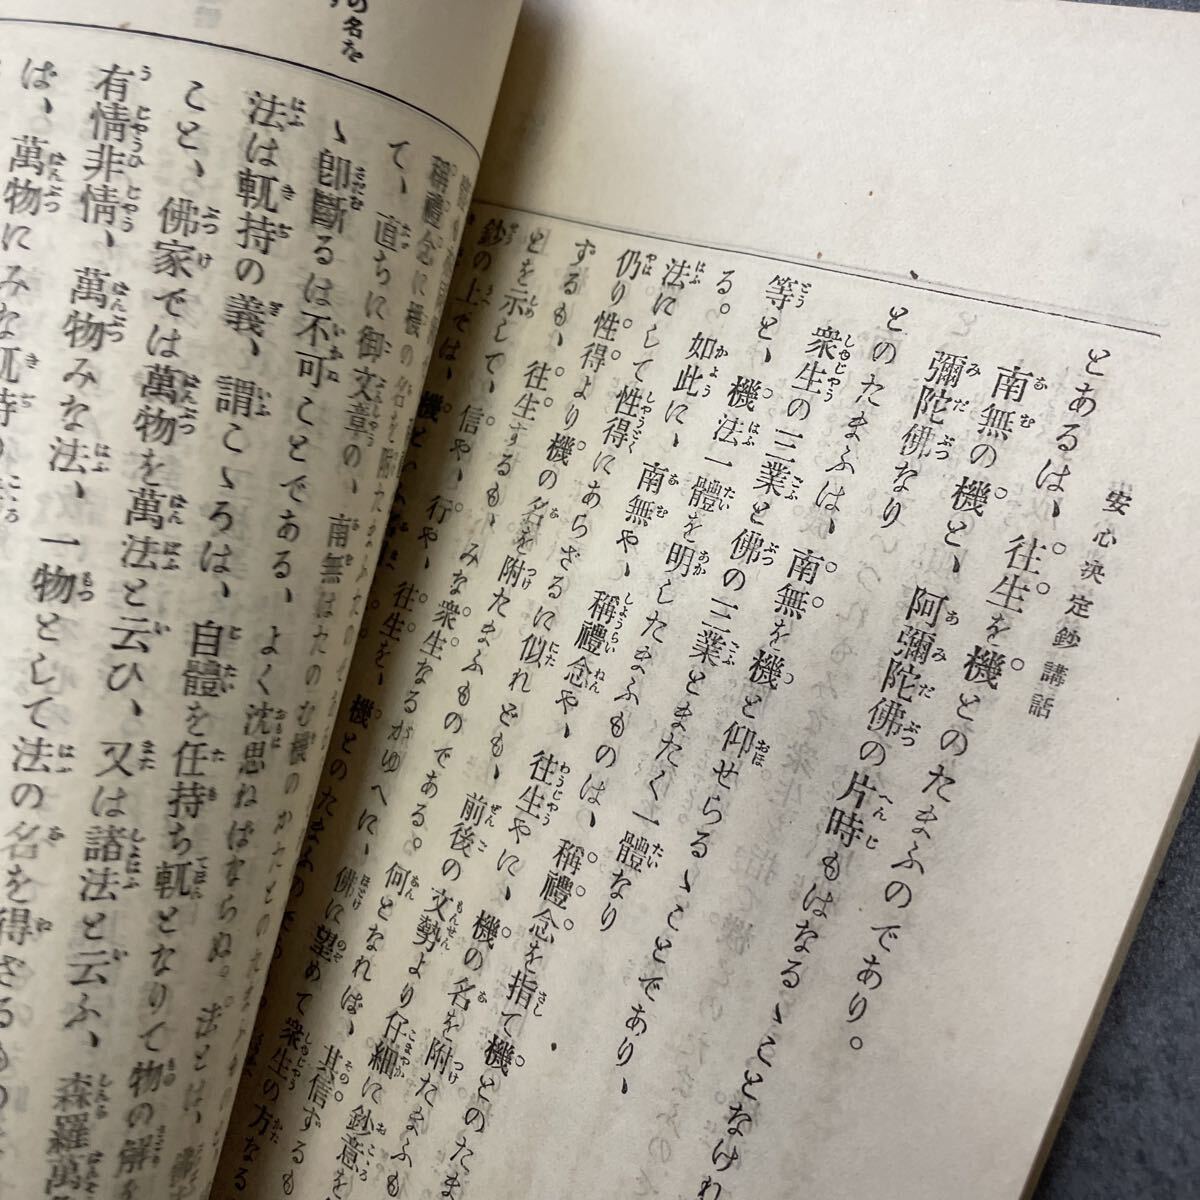 安心決定鈔講話
とあるは、往生を機とのたまふのであり。
南無の機と、阿彌陀佛の片時もはなるゝことなけれ
彌陀佛なり
とのたまふは、南無を機と仰せらるゝことであり、
衆生の三業と佛の三業とまたく一體なり
等と、機法一體を明したまふものは、稱禮念を指て機とのたま
る。如此に、南無や、稱禮念や、往生やに、機の名を附たまふも
法にして性得にあらざるに似れども、前後の文勢より仔細に鈔意を
仍り性得より機の名を附たまふものである。何となれば、其信ずるも
ずるも、往生するも、みな衆生なるがゆへに、佛に望めて衆生の方なる
とを示して、信や、行や、往生を、機とのたまふのである
鈔の上では、機と
稱禮念に機の名を附たまふ
て、直ちに御文章の、南無はたのむ機のかたとのたまふ
ゝ卽斷るは不可ことである、よく沈思ねばならぬ。法とは、
法は軌持の義、謂こゝろは、自體を任持ち軌となりて物の解を
こと、佛家では萬物を萬法と云ひ、又は諸法と云ふ、森羅萬
有情非情、萬物みな法、一物として法の名を得ざるもの
ば、萬物にみな軌持の
の名を